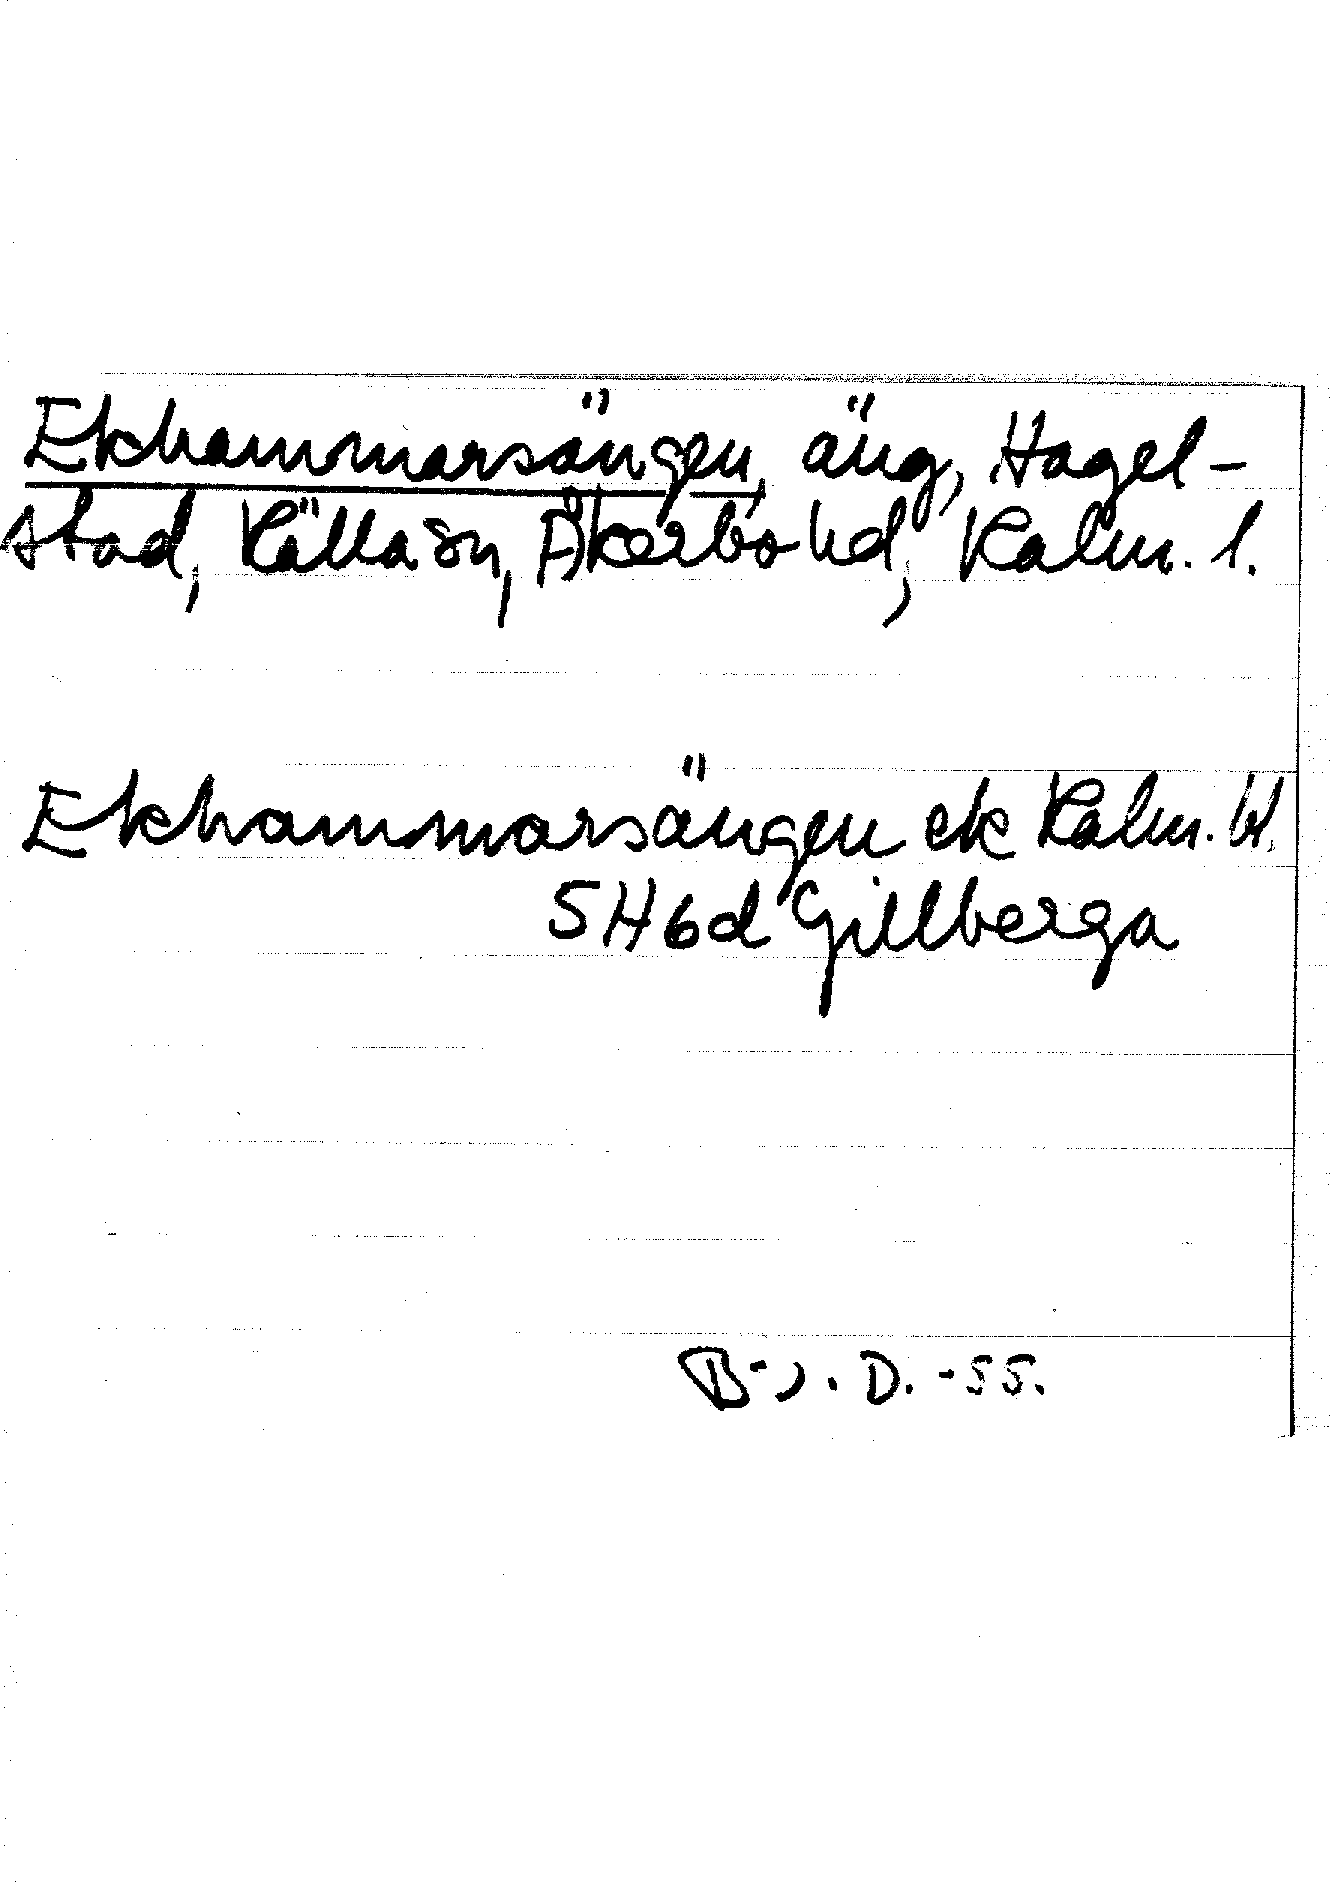 Ekhammarsängen, äng, Hagel-
stad, Källa sn, Åkerbo hd, Kalm. l.
Ekhammarsängen ek Kalm. bl.
5H6d Gillberga
B-J. D. -55.